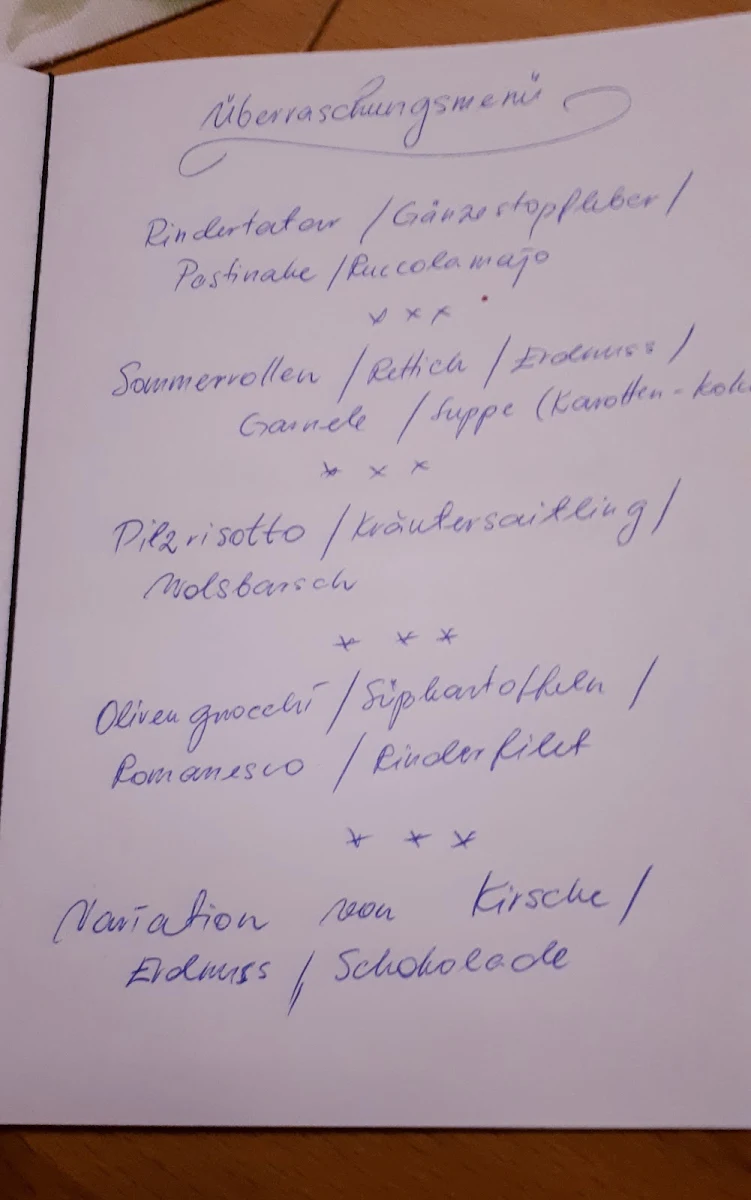 Überraschungsmenü
Rindertatar / Gänzestopfleber /
Pastinake / Ruccolamajo
* * *
Sommerrollen / Rettich / Erdnuss /
Garnele / Suppe (Karotten - Kok
* * *
Pilzrisotto / Kräutersaitling /
Wolsbarsch
* * *
Oliven gnocchi / Süßkartoffeln /
Romanesco / Rinderfilet
* * *
Variation von Kirsche /
Erdnuss / Schokolade